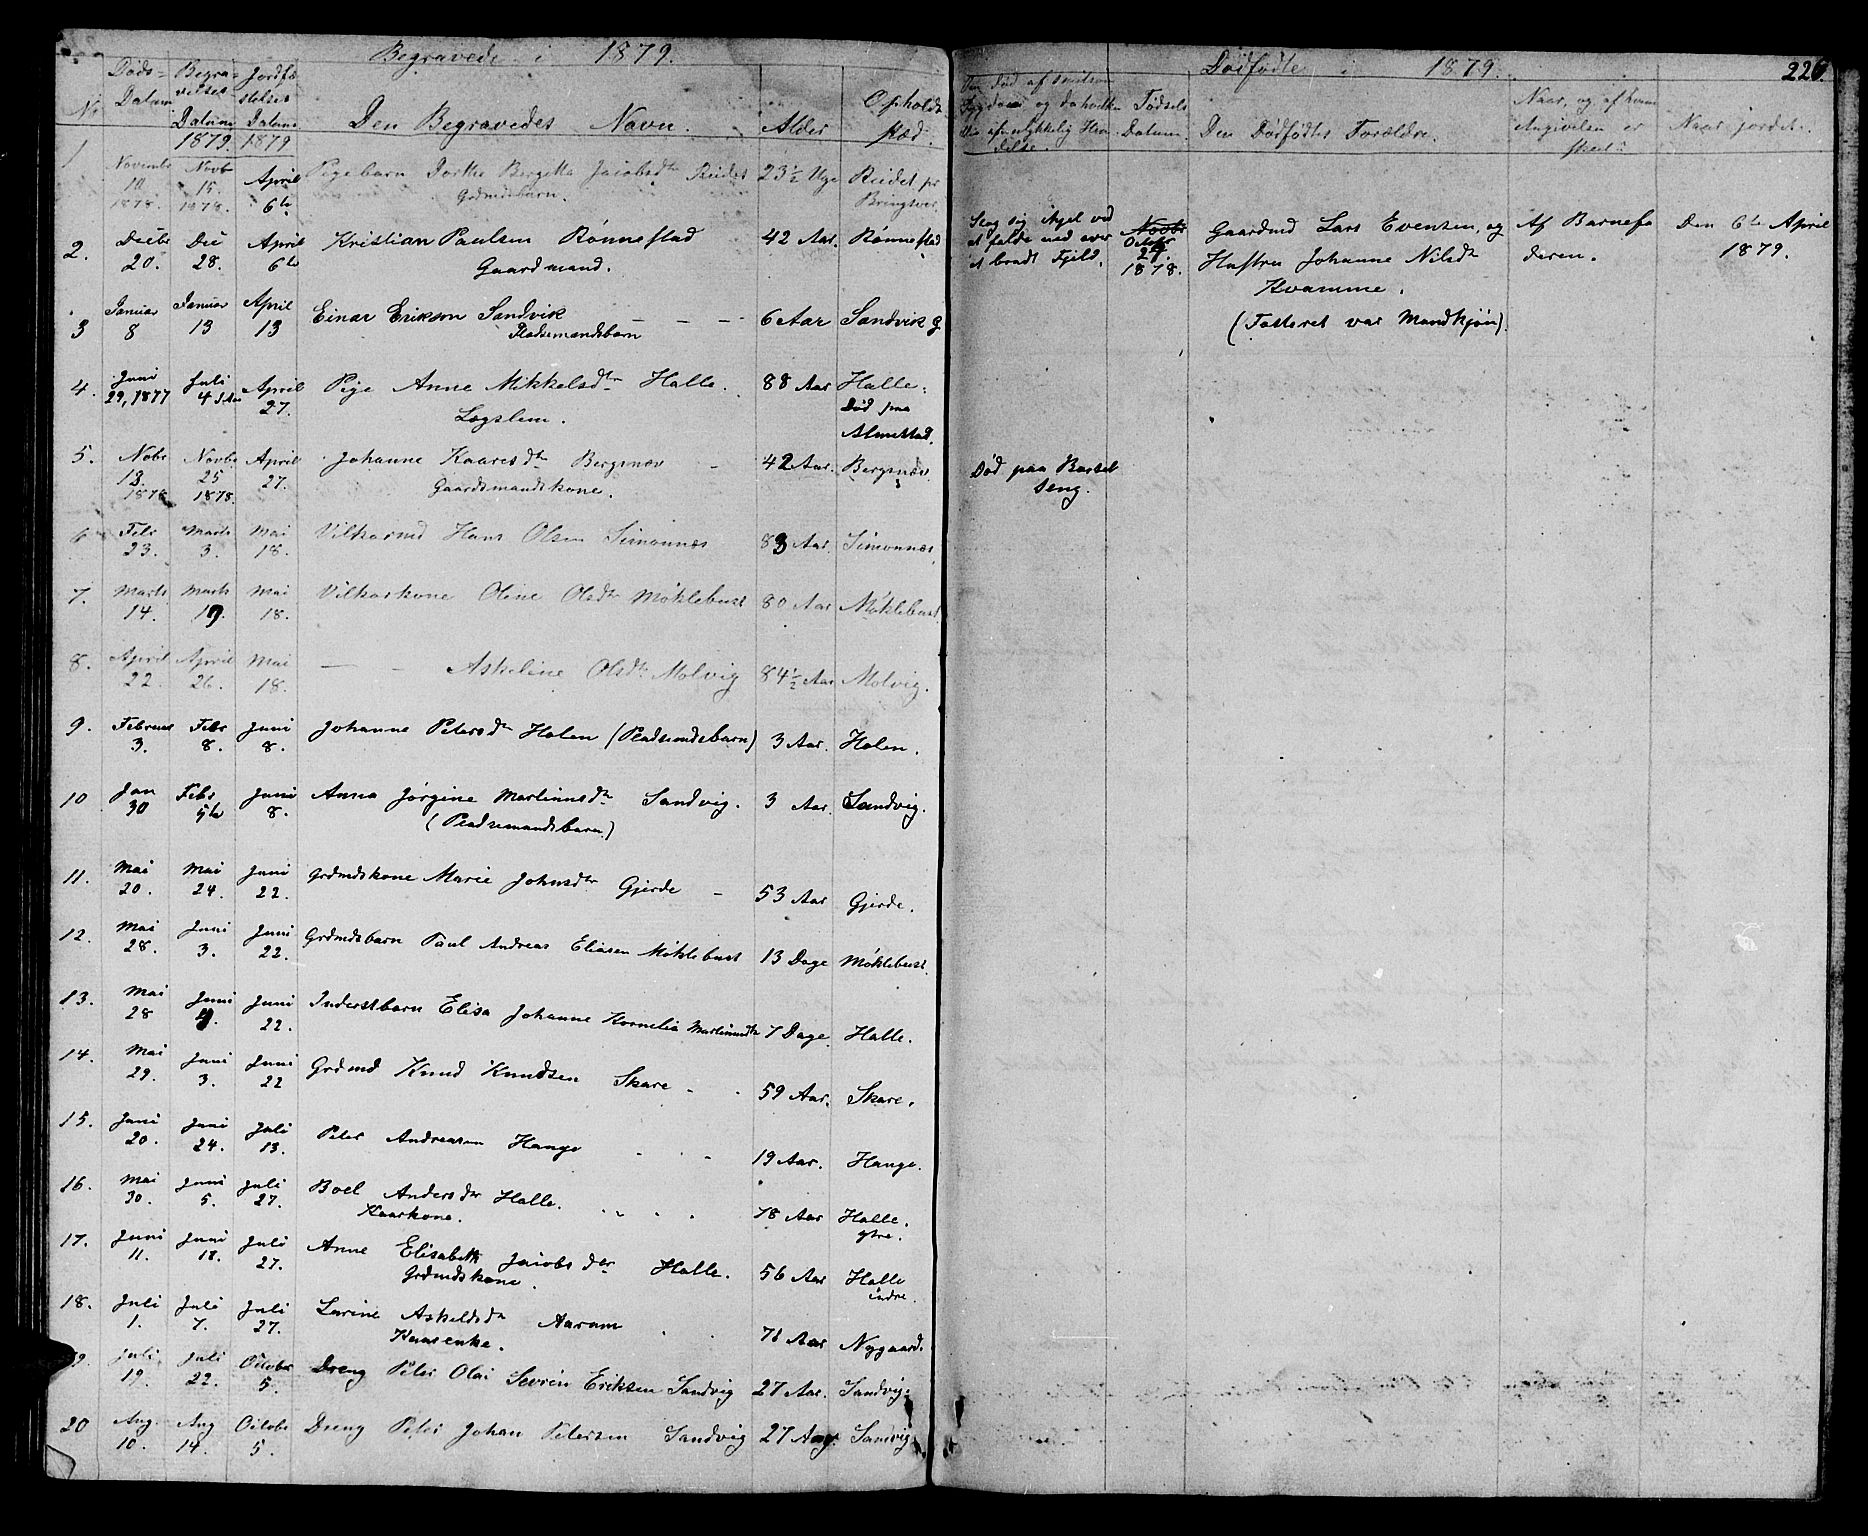 Begravede i 1879.
No
Døds-Datum
Begravelses Datum 1879.
Jordfæstelses Datum 1879
Den Begravedes Navn.
Alder
Opholdssted.
1 Novembr 10 1878. Novb 15. 1878. April 6te Pigebarn Dorthe Bergitta Jacobsdtr Reidet 23½ Uge Reidet pr
Grdmdsbarn.
2. Decbr 20. Dec 28. April 6te Kristian Paulsen Rønnestad 42 Aar. Rønnestad
Gaardmand.
3 Januar 8 Januar 13 April 13 Einar Erikson Sandvik - - - 6 Aar Sandvik
Pladsemandsbarn
4. Juni 29, 1877 Juli 4 April 27. Pige Anne Mikkelsdtr Halle. 88 Aar Halle.
Lægslem. Død paa
Almestad.
5. Nobr 18 1878 Novbr 25 1878. April 27. Johanne Kaaresdtr Bergsnæv - 42 Aar. Bergsnæv
Gaardsmandskone.
6 Febr 23. Marts 3. Mai 18. Vilkarmd Hans Olsen Simonnæs 83 Aar. Simonnæs
7. Marts 14. Marts 19 Mai 18. Vilkarkone Oline Olsdtr Møklebust 80 Aar Møklebust
8. April 22. April 26. Mai 18. - - Askeline Olsdtr Molvig 84½ Aar Molvig.
9. Februar 3. Febr 8. Juni 8. Johanne Petersdtr Holen (Pladsmdsbarn) 3 Aar. Holen.
10 Jan 30 Febr 5te Juni 8. Anna Jørgine Martinusdtr Sandvig. 3 Aar. Sandvig.
(Pladsemandsbarn)
11. Mai 20. Mai 24. Juni 22. Grdmdskone Marie Johnsdtr Gjerde - 53 Aar Gjerde.
12. Mai 28. Juni 3. Juni 22. Grdmdsbarn Paul Andreas Eliasen Møklebust 13 Dage Møklebust.
13. Mai 28 Juni 4. Juni 22. Inderstbarn Elisa Johanne Kornelia Martinusdtr 7 Dage Halle.
14. Mai 29. Juni 3. Juni 22 Grdmd Knud Knudsen Skare - 59 Aar. Skare.
15. Juni 20. Juni 24. Juli 13. Peter Andreasen Hauge 19 Aar. Hauge.
16. Mai 30. Juni 5. Juli 27. Boel Andersdtr Halle. 78 Aar Halle.
Kaarkone. ytre.
17. Juni 11. Juni 18. Juli 27. Anne Elisabeth Jacobsdtr Halle. 56 Aar Halle
Grdmdskone. indre.
18. Juli 1. Juli 7. Juli 27. Larine Askeldsdtr Aaram 71 Aar Nygaard.
Kaarenke.
19. Juli 19. Juli 22. Octobr 5. Dreng Peter Olai Severin Eriksen Sandvig 27 Aar. Sandvig
20 Aug. 10. Aug 14. Octobr 5. Dreng Peter Johan Petersen Sandvig 27 Aar Sandvig
Dødfødte i 1879. 226.
Fødsels Datum.
Den Dødfødtes Forældre.
Naar, og af hvem Angivelsen er skeet.
Naar jordet.
Slog sig ihjel ved
at falde ned over
et bradt Fjeld.
Novbr Octobr 27. 1878.
Gaardmd Lars Evensen, og Hustru Johanne Nilsdtr Kvamme.
(Fosteret var Mandkjøn).
Af Barnefaderen.
Den 6te April 1879.
Død paa Barselseng.